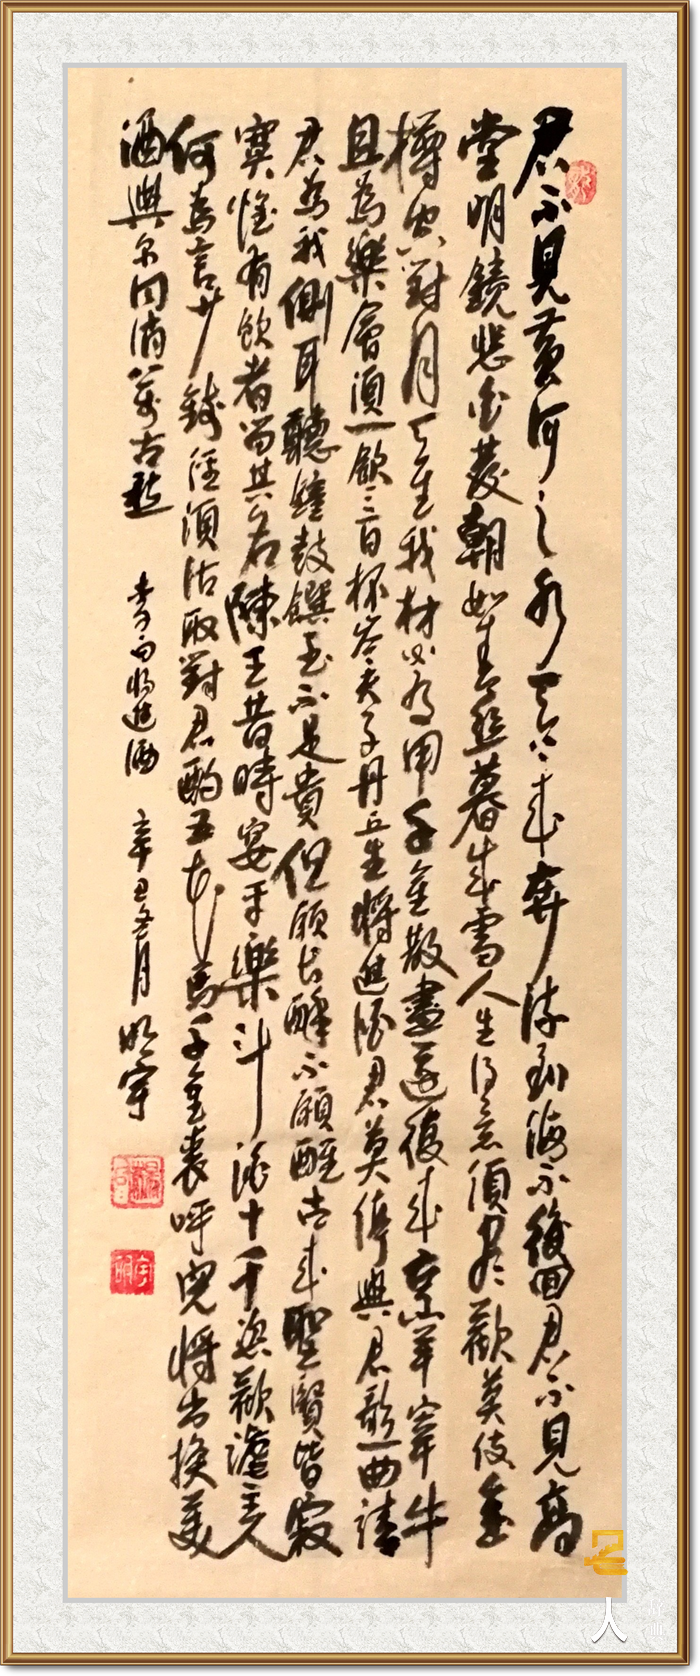 君不見黃河之水天上來奔流到海不復回君不見高
堂明鏡悲白髮朝如青絲暮成雪人生得意須盡歡莫使金
樽空對月天生我材必有用千金散盡還復來烹羊宰牛
且為樂會須一飲三百杯岑夫子丹丘生將進酒君莫停與君歌一曲請
君為我側耳聽鐘鼓饌玉不足貴但願長醉不願醒古來聖賢皆寂
寞惟有飲者留其名陳王昔時宴平樂斗酒十千恣歡謔主人
何為言少錢徑須沽取對君酌五花馬千金裘呼兒將出換美
酒與尔同消萬古愁 李白將進酒 辛丑冬月 明宇